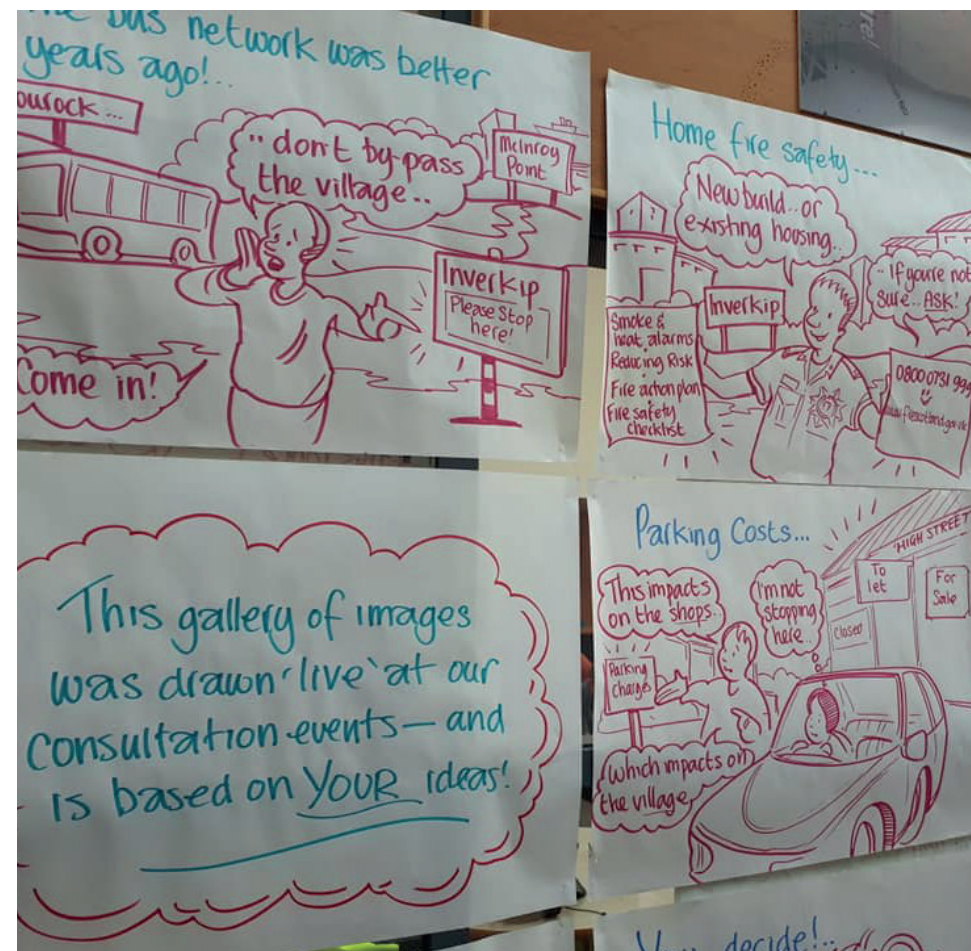 The bus network was better
years ago!..
ourock...
"don't by-pass
the village..
McInroy
Point
Inverkip
Please Stop
here!
Come in!
Home fire safety...
New build..or
existing housing..
.. If you're not
sure.. ASK!
Inverkip
Smoke &
heat alarms
Reducing Risk
Fire action plan
Fire safety
checklist
0800 0731 999
This gallery of images
was drawn 'live' at our
consultation events — and
is based on YOUR ideas!
Parking Costs...
This impacts
on the shops..
I'm not
stopping
here..
Parking
Charges
which impacts on
the village
'HIGH STREET'
To
let
For
Sale
Closed
You decide!..